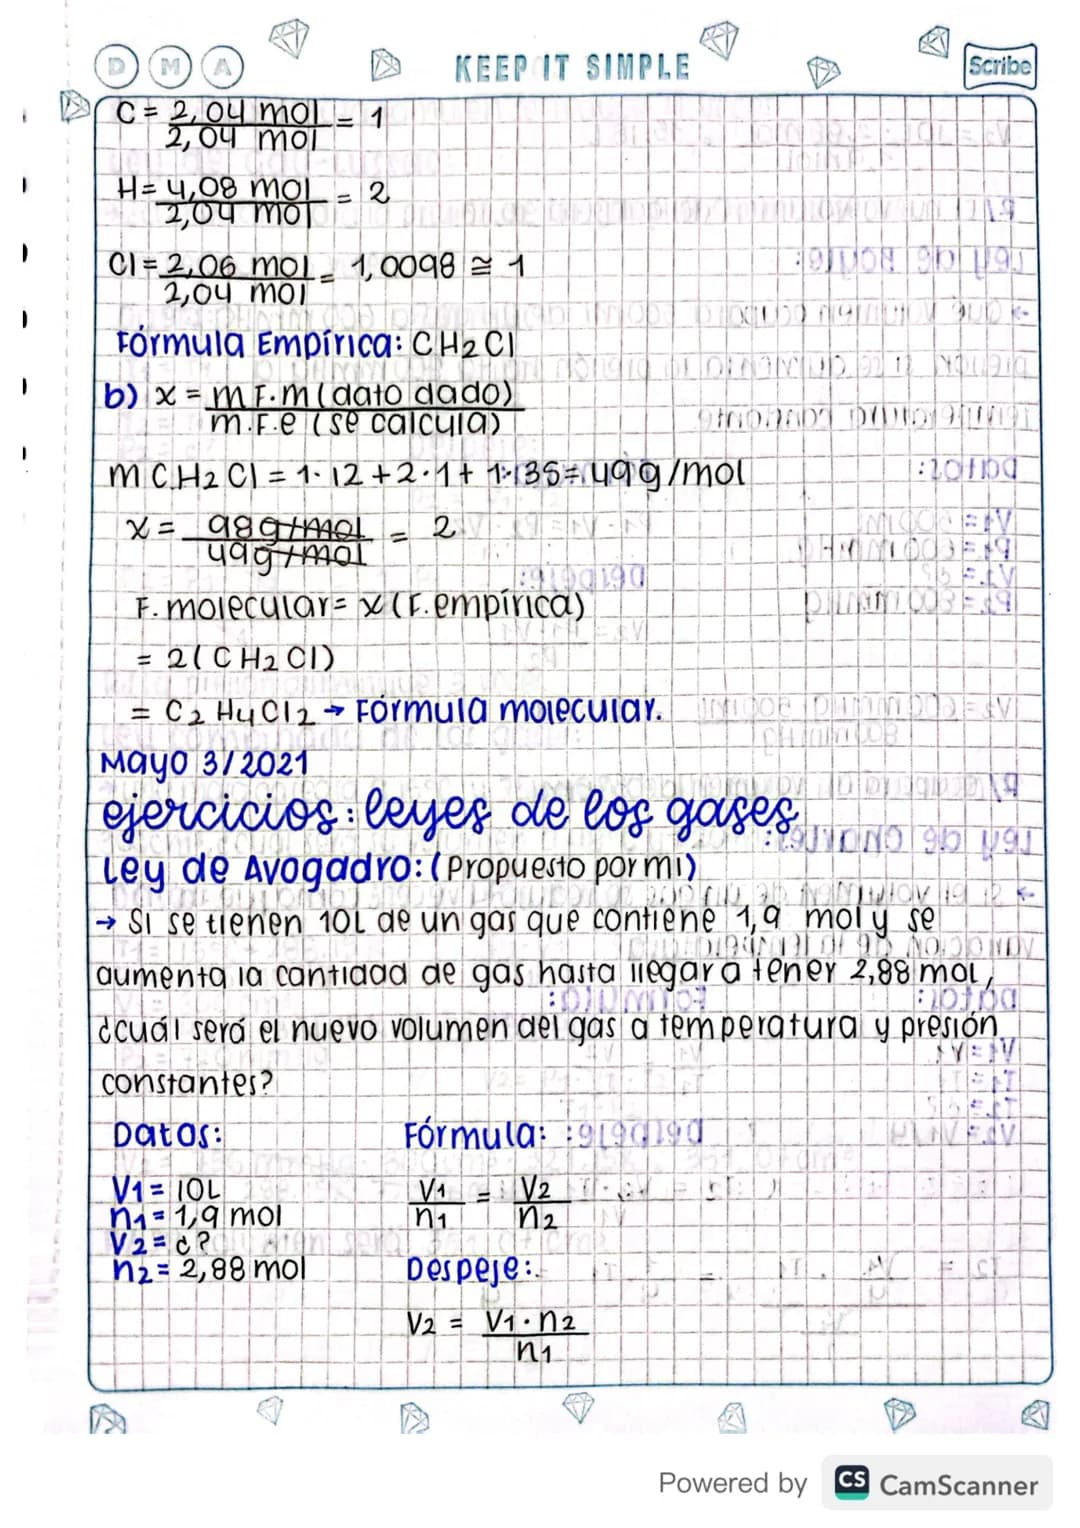 D M A
KEEP IT SIMPLE
Scribe
C = 2,04 mol = 1
2,04 mol
H = 4,08 mol = 2
2,04 mol
Cl = 2,06 mol = 1,0098 ≅ 1
2,04 mol
Fórmula Empírica: CH2Cl
b) x = m F.m (dato dado)
m.F.e (se calcula)
m CH2Cl = 1·12 + 2·1 + 1·35 = 49g/mol
x = 98g/mol = 2
49g/mol
F. molecular = x (F. empírica)
= 2(CH2Cl)
= C2H4Cl2 → Fórmula molecular.
Mayo 3/2021
ejercicios: leyes de los gases
Ley de Avogadro: (Propuesto por mi)
→ Si se tienen 10L de un gas que contiene 1,9 mol y se
aumenta la cantidad de gas hasta llegar a tener 2,88 mol,
¿cuál será el nuevo volumen del gas a temperatura y presión
constantes?
Datos:
Fórmula:
V1 = 10L
n1 = 1,9 mol
V2 = ¿?
n2 = 2,88 mol
V1 = V2
n1 n2
Despeje:
V2 = V1 · n2
n1
Powered by CS CamScanner